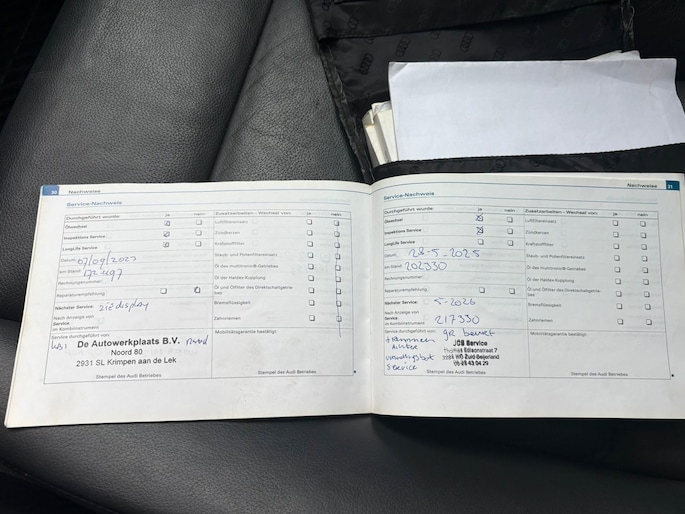 30 Nachweise
Service-Nachweis
Durchgeführt wurde: ja nein
Ölwechsel
Inspektions Service
LongLife Service
Datum: 07/09/2023
km-Stand:
Rechnungsnummer:
Reparaturempfehlung
Nächster Service: zie display
Nach Anzeige von
Service
im Kombiinstrument
Service durchgeführt von:
Zusatzarbeiten - Wechsel von: ja nein
Luftfiltereinsatz
Zündkerzen
Kraftstofffilter
Staub- und Pollenfiltereinsatz
Öl des multitronic®-Getriebes
Öl der Haldex-Kupplung
Öl und Ölfilter des Direktschaltgetriebes
Bremsflüssigkeit
Zahnriemen
Mobilitätsgarantie bestätigt:
De Autowerkplaats B.V.
Noord 80
2931 SL Krimpen aan de Lek
Stempel des Audi Betriebes
Stempel des Audi Betriebes
Nachweise 31
Service-Nachweis
Durchgeführt wurde: ja nein
Ölwechsel
Inspektions Service
LongLife Service
Datum: 28-5-2025
km-Stand: 202330
Rechnungsnummer:
Reparaturempfehlung
Nächster Service: 5-2026
Nach Anzeige von
Service
im Kombiinstrument 217330
Service durchgeführt von:
Zusatzarbeiten - Wechsel von: ja nein
Luftfiltereinsatz
Zündkerzen
Kraftstofffilter
Staub- und Pollenfiltereinsatz
Öl des multitronic®-Getriebes
Öl der Haldex-Kupplung
Öl und Ölfilter des Direktschaltgetrie-
bes
Bremsflüssigkeit
Zahnriemen
Mobilitätsgarantie bestätigt:
+ Remmen gr beurt
Achter
Service
JCB Service
Thomas Edisonstraat 7
Zuid-Beijerland
Stempel des Audi Betriebes
Stempel des Audi Betriebes